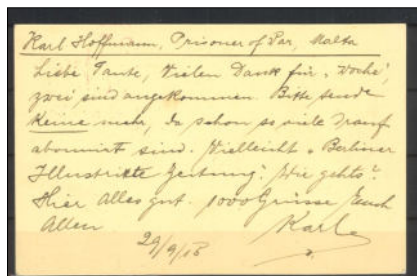 Karl Hoffmann, Prisoner of War, Malta
Liebe Tante, Vielen Dank für „Woche",
zwei sind angekommen. Bitte sende
keine mehr, da schon so viele drauf
abonnirt sind. Vielleicht „Berliner
Illustrirte Zeitung". Wie gehts?
Hier Alles gut. 1000 Grüsse Euch
Allen Karl
29/9/15